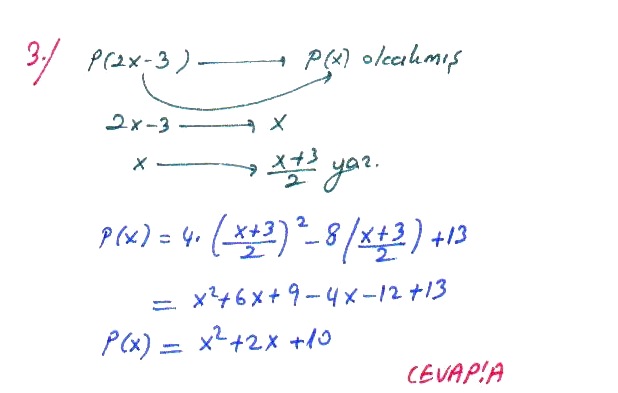 3./ P(2x-3) ⟶ P(x) olacakmış
2x-3 ⟶ x
x ⟶ x+3/2 yaz.
P(x) = 4.(x+3/2)²-8(x+3/2)+13
= x²+6x+9-4x-12+13
P(x) = x²+2x+10
CEVAP:A